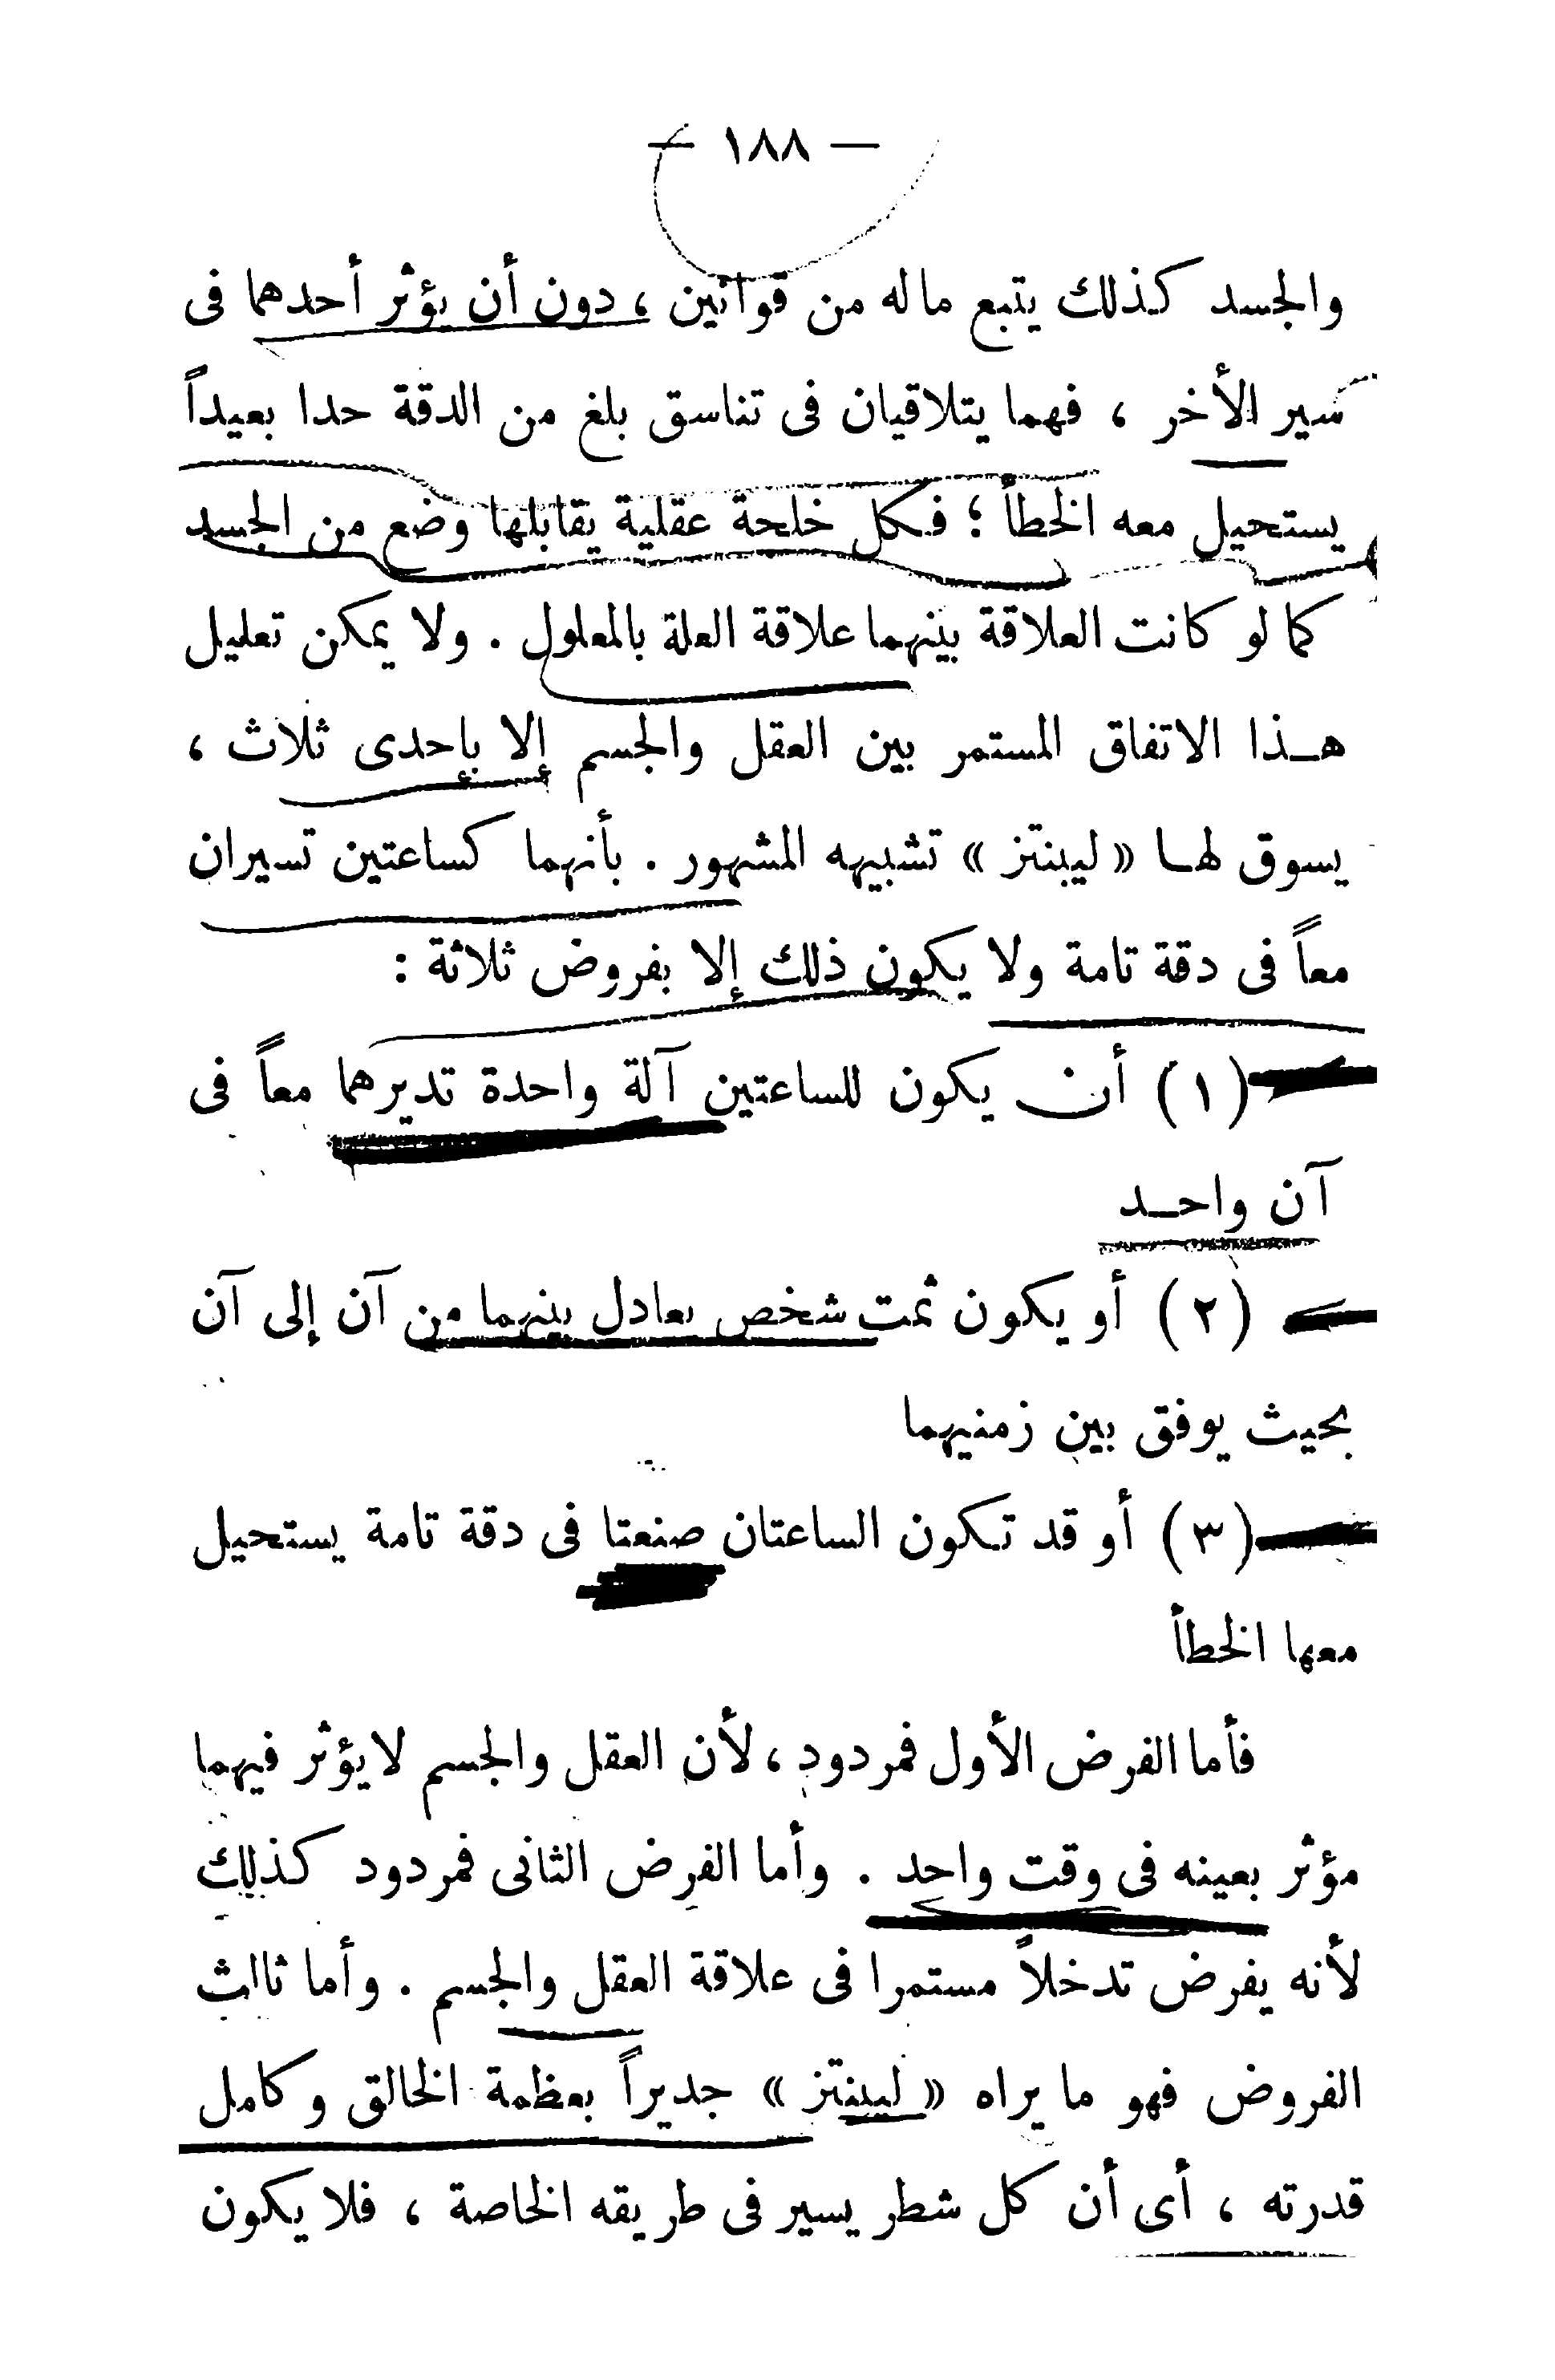 — ١٨٨ —
والجسد كذلك يتبع ماله من قوانين ، دون أن يؤثر أحدهما فى
سير الأخر ، فهما يتلاقيان فى تناسق بلغ من الدقة حدا بعيداً
يستحيل معه الخطأ ؛ فكل خلجة عقلية يقابلها وضع من الجسد
كما لو كانت العلاقة بينهما علاقة العلة بالمعلول . ولا يمكن تعليل
هـذا الاتفاق المستمر بين العقل والجسم إلا بإحدى ثلاث ،
يسوق لهـا « ليبنتز » تشبيهه المشهور . بأنهما كساعتين تسيران
معاً فى دقة تامة ولا يكون ذلك إلا بفروض ثلاثة :
(١) أن يكون للساعتين آلة واحدة تديرهما معاً فى
آن واحـد
(٢) أو يكون ثمت شخص يعادل بينهما من آن إلى آن
بحيث يوفق بين زمنيهما
(٣) أو قد تكون الساعتان صنعتا فى دقة تامة يستحيل
معها الخطأ
فأما الفرض الأول فمردود ، لأن العقل والجسم لا يؤثر فيهما
مؤثر بعينه فى وقت واحد . وأما الفرض الثانى فمردود كذلك
لأنه يفرض تدخلاً مستمرا فى علاقة العقل والجسم . وأما ثالث
الفروض فهو ما يراه « ليبنتز » جديراً بعظمة الخالق وكامل
قدرته ، أى أن كل شطر يسير فى طريقه الخاصة ، فلا يكون